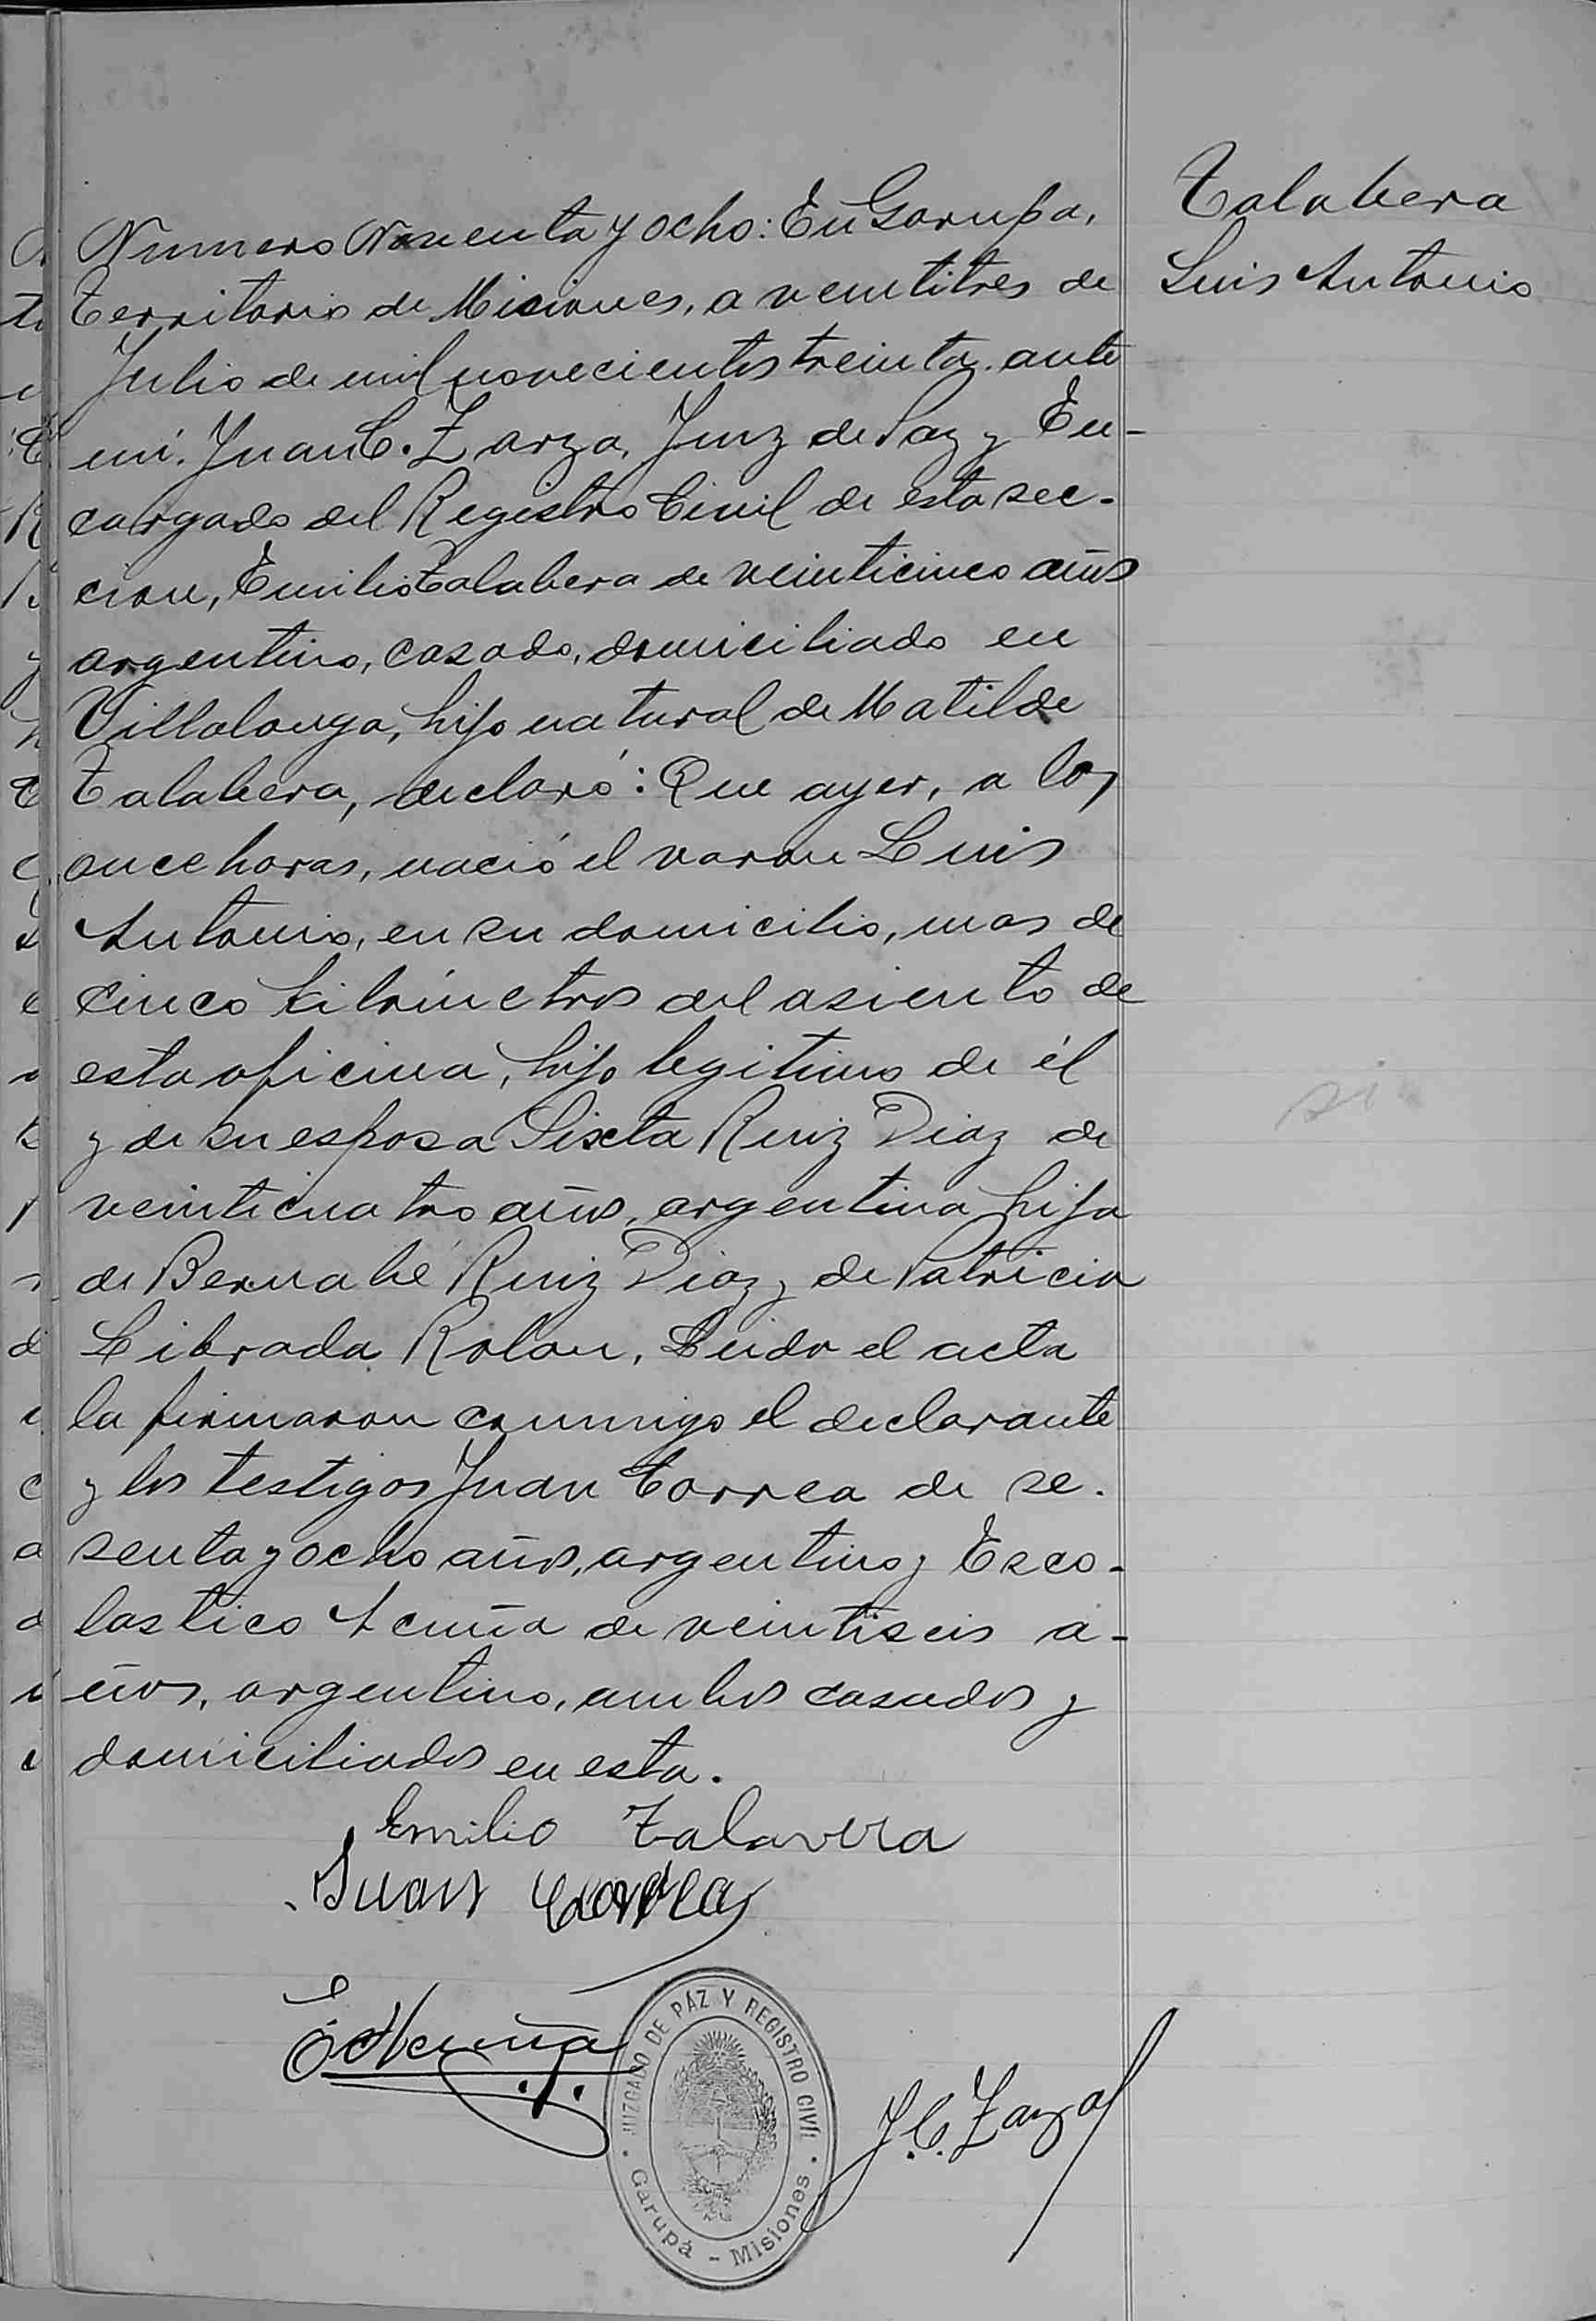 Talabera
Luis Antonio
Numero Noventa y ocho: En Garupa,
territorio de Misiones, a veintitres de
Julio de mil novecientos treinta. ante
mí. Juan C. Zarza, Juez de Paz y En-
cargado del Registro Civil de esta sec-
cion, Emilio Talabera de veinticinco años
argentino, casado, domiciliado en
Villalonga, hijo natural de Matilde
Talabera, declaró: Que ayer, a las
once horas, nació el varon Luis
Antonio, en su domicilio, mas de
cinco kilómetros del asiento de
esta oficina, hijo legitimo de él
y de su esposa Sixta Ruiz Diaz de
veinticuatro años, argentina hija
de Bernabé Ruiz Diaz y de Patricia
Librada Rolon, Leido el acta
la firmaron conmigo el declarante
y los testigos Juan Correa de se.
senta y ocho años, argentino y Esco-
lastico Acuña de veintiseis a-
ños, argentino, ambos casados y
domiciliados en esta.
Emilio Talavera
Juan Correa
E Acuña
JUZGADO DE PAZ Y REGISTRO CIVIL
Garupá - Misiones
J. C. Zarza